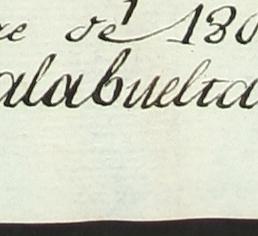 de 180
alabuelta